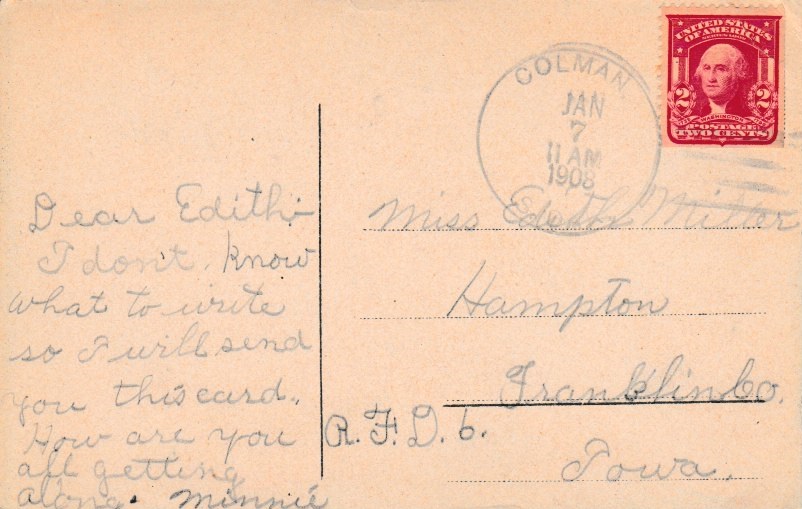 UNITED STATES
OF AMERICA
2 WASHINGTON 2
POSTAGE
TWO CENTS
COLMAN
JAN
7
11 AM
1908
Dear Edith:-
I don't know
what to write
so I will send
you this card.
How are you
all getting
along. Minnie
Miss Edith Miller
Hampton
Franklin Co.
R. F. D. 6.
Iowa.